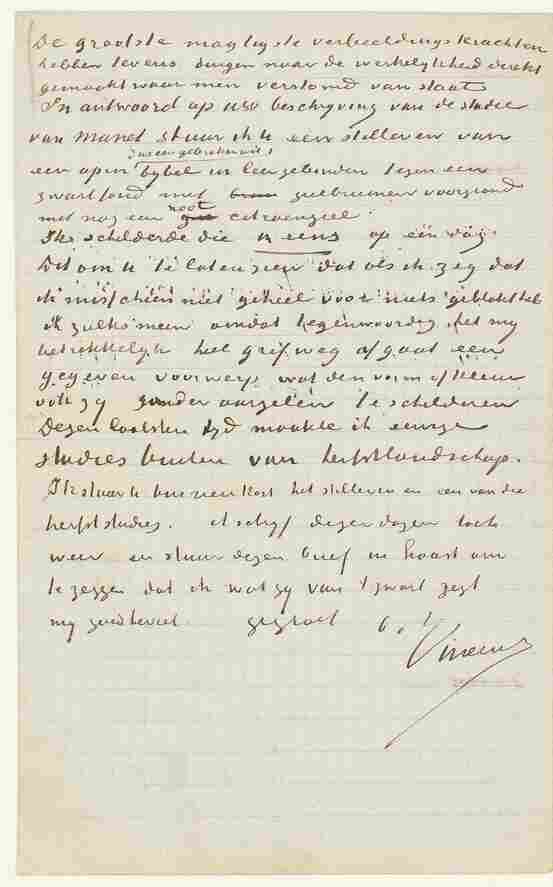 De grootste magtigste verbeeldingskrachten
hebben tevens dingen naar de werkelijkheid direkt
gemaakt waar men verstomd van staat
In antwoord op uw beschrijving van de studie
van Manet stuur ik u een stilleven van
een open dus een gebroken wit bijbel in leer gebonden tegen een
zwart fond met geelbruinen voorgrond
met nog een noot citroengeel.
Ik schilderde die in eens op een dag.
Dit om u te laten zien dat als ik zeg dat
ik misschien niet geheel voor niets geblokt heb
ik zulks meen omdat tegenwoordig het my
betrekkelyk heel grif weg af gaat een
gegeven voorwerp wat den vorm of kleur
ook zy zonder aarzelen te schilderen
Dezen laatsten tyd maakte ik eenige
studies buiten van herfstlandschap.
Ik stuur u binnen kort het stilleven en een van die
herfststudies. schryf dezer dagen toch
weer en stuur dezen brief in haast om
te zeggen dat ik wat gy van 't zwart zegt
my goed beviel. gegroet b. à. t.
Vincent